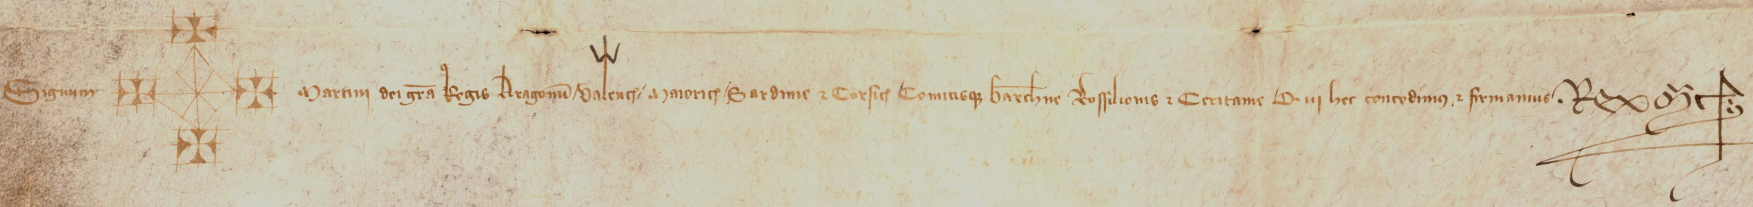 Signum Martini dei gra Regis Aragonu Valencie Maioric Sardinie & Corsice Comitisq barchne Rossilionis & Ceritanie Qui hec concedimus & firmamus. Rex